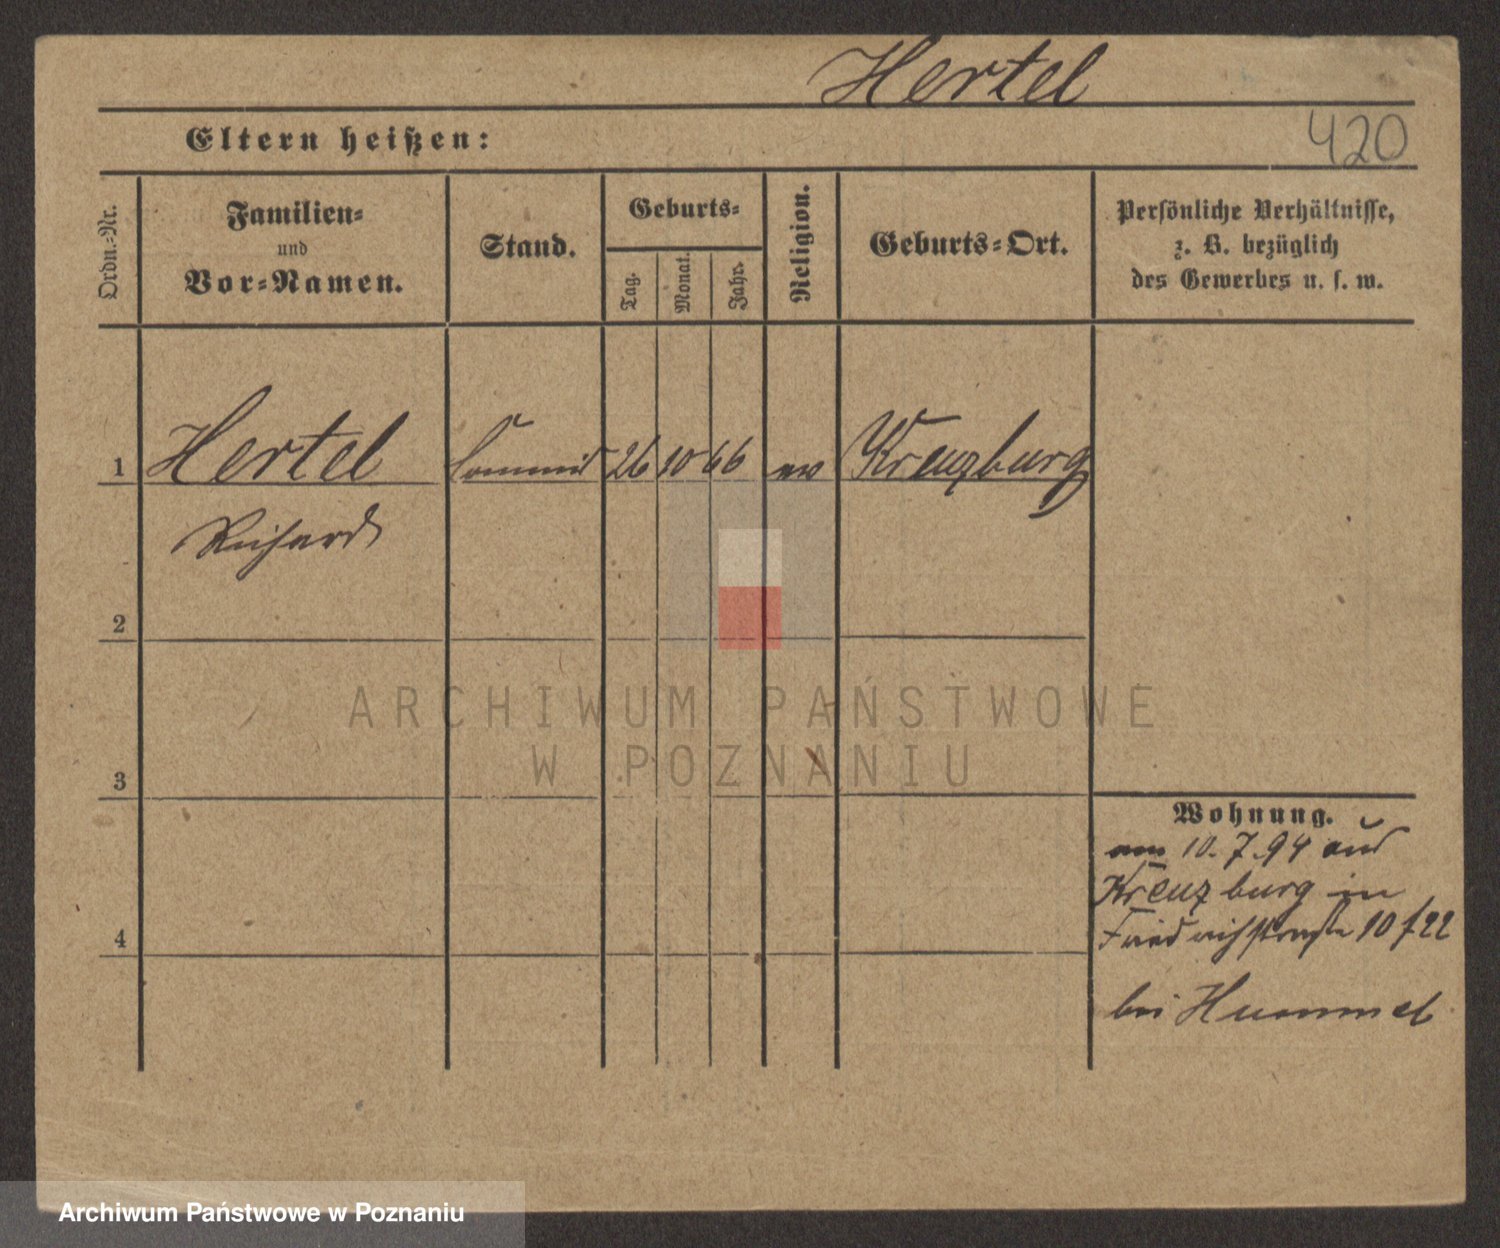 Hertel
Eltern heißen:
420
Ordn.-Nr.
Familien-
und
Vor-Namen.
Stand.
Geburts-
Tag.
Monat.
Jahr.
Religion.
Geburts-Ort.
Persönliche Verhältnisse,
z. B. bezüglich
des Gewerbes u. s. w.
1 Hertel Commis 26 10 66 ev Kreuzburg
Richard
2
3
4
Wohnung.
am 10.7.94 aus
Kreuzburg in
Friedrichstraße 10 f 22
bei Hummel
ARCHIWUM PAŃSTWOWE
W POZNANIU
Archiwum Państwowe w Poznaniu